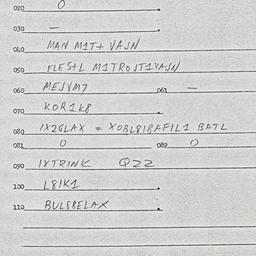 020 0
030 —
040 MAN M1T+ VAJN
050 FLES+L M1TROJT1VAJN
060 MEJVM7 061 —
070 KOR1K8
080 1X2GLAX = XOBL8IBAFIL1 BATL
081 0 082 0
090 IXTRINK Q22
100 L8IK1
110 BUL8BELAX